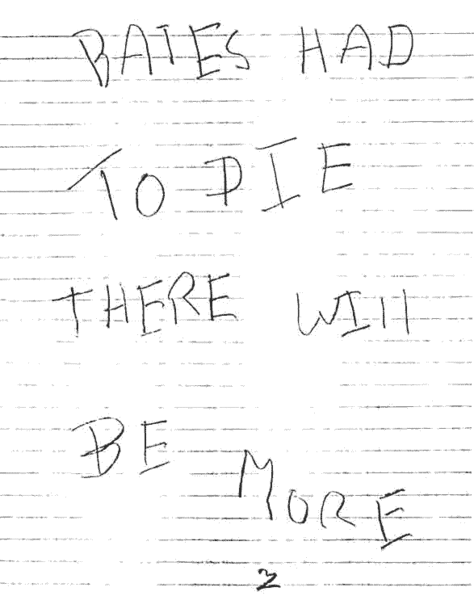 BATES HAD
TO DIE
THERE WILL
BE MORE
2